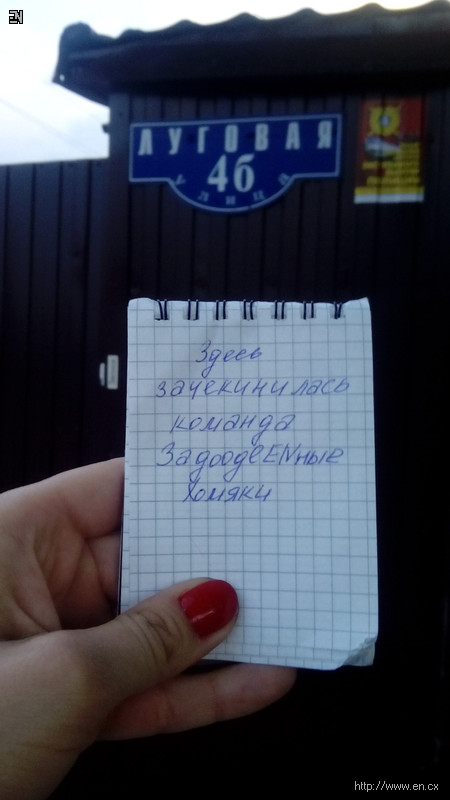 EN
ЛУГОВАЯ
4б
УЛИЦА
Здесь
зачекинилась
команда
ЗадоодеENные
Хомяки
http://www.en.cx